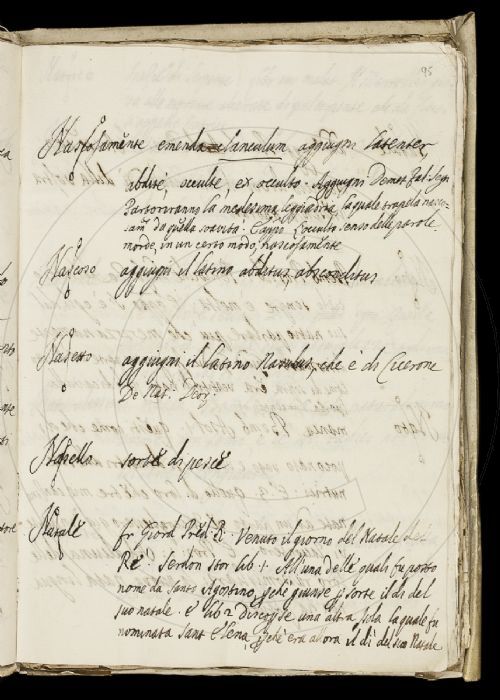 95
Nascosamẽte emenda clanculum aggiugni latenter,
abditè, occultè, ex occulto. Aggiugni Demet. fal. Segn.
Partoriranno la medesima leggiadria, la quale trapela nasco-
samẽ. da quella soavità. E appo l'occulto senso delle parole
morde, in un certo modo, nascosamente
Nascoso aggiugni il latino abditus absconditus
Nasetto aggiugni il latino Nasulus, che è di Cicerone
De Nat. Deor.
Nasello sorte di pesce
Natale fr Giord Pred. R. Venuto il giorno del Natale del
Re. Serdon sto lib 1. All'una delle quali fu posto
nome da santo Agostino, pche giunse p sorte il dì del
suo natale. E lib 2 Discopse una altra isola la quale fu
nominata sant Elena, pche era allora il dì del suo Natale